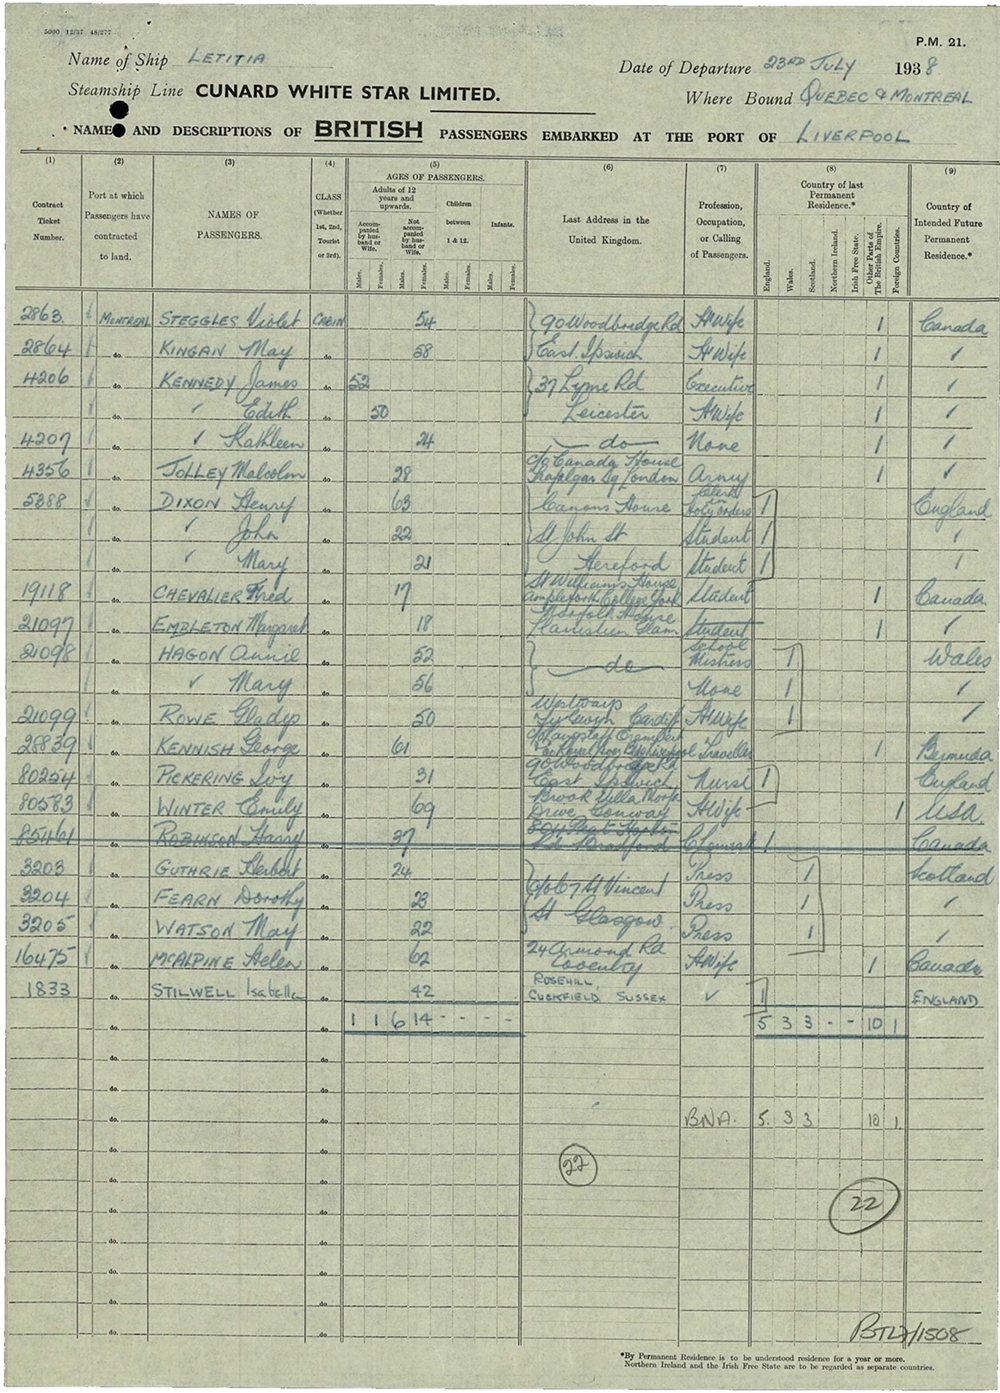 5000 12/37 48/277
P.M. 21.
Name of Ship LETITIA
Date of Departure 23RD JULY 1938
Steamship Line CUNARD WHITE STAR LIMITED.
Where Bound QUEBEC & MONTREAL
NAMES AND DESCRIPTIONS OF BRITISH PASSENGERS EMBARKED AT THE PORT OF LIVERPOOL
(1) (2) (3) (4) (5) (6) (7) (8) (9)
Contract Ticket Number.
Port at which Passengers have contracted to land.
NAMES OF PASSENGERS.
CLASS (Whether 1st, 2nd, Tourist or 3rd).
AGES OF PASSENGERS.
Adults of 12 years and upwards.
Accompanied by husband or Wife.
Not accompanied by husband or Wife.
Children between 1 & 12.
Infants.
Males. Females. Males. Females. Males. Females. Males. Females.
Last Address in the United Kingdom.
Profession, Occupation, or Calling of Passengers.
Country of last Permanent Residence.*
England. Wales. Scotland. Northern Ireland. Irish Free State. Other Parts of The British Empire. Foreign Countries.
Country of Intended Future Permanent Residence.*
2863. MONTREAL STEGGLES Violet CABIN 54 90 Woodbridge Rd H'Wife 1 Canada
2864 do. KINGAN May do 58 East. Ipswich H'Wife 1 ✓
4206 do. KENNEDY James do 52 37 Lyme Rd Executive 1 ✓
do. ✓ Edith do 50 Leicester H'Wife 1 ✓
4207 do. ✓ Kathleen do 24 do None 1 ✓
4356 do. JOLLEY Malcolm do 28 c/o Canada House Trafalgar Sq London Army 1 ✓
5388 do. DIXON Henry do 63 Canons House Clerk in Holy orders 1 England
do. ✓ John do 22 St John St Student 1 ✓
do. ✓ Mary do 21 Hereford Student 1 ✓
19118 do. CHEVALIER Fred do 17 St William's House Ampleforth College York Student 1 Canada
21097 do. EMBLETON Margaret do 18 Norfolk House Glam Student 1 ✓
21098 do. HAGON Annie do 52 do School Mistress 1 Wales
do. ✓ Mary do 56 None 1 ✓
21099 do. ROWE Gladys do 50 Cardiff H'Wife 1 ✓
28839 do. KENNISH George do 61 Traveller 1 Bermuda
80254 do. PICKERING Ivy do 31 90 Woodbridge Rd East Ipswich Nurse 1 England
80583 do. WINTER Emily do 69 Brook Villa Drive Conway H'Wife 1 USA.
85461 do. ROBINSON Harry do 37 Bradford Chemist 1 Canada
3203 do. GUTHRIE Herbert do 24 c/o 67 St Vincent Press 1 Scotland
3204 do. FEARN Dorothy do 23 St Glasgow. Press 1 ✓
3205 do. WATSON May do 22 Press 1 ✓
16475 do. McALPINE Helen do 62 24 Armond Rd Coventry H'Wife 1 Canada
1833 do. STILWELL Isabella do 42 ROSEHILL, CUCKFIELD SUSSEX ✓ 1 ENGLAND
do. do 1 1 6 14 - - - - 5 3 3 - - 10 1
do. do
do. do
do. do BNA. 5. 3 3 10 1
do. do
do. do
22
do. do
22
do. do
do. do
do. do
do. do
BTLD/1508
*By Permanent Residence is to be understood residence for a year or more.
Northern Ireland and the Irish Free State are to be regarded as separate countries.